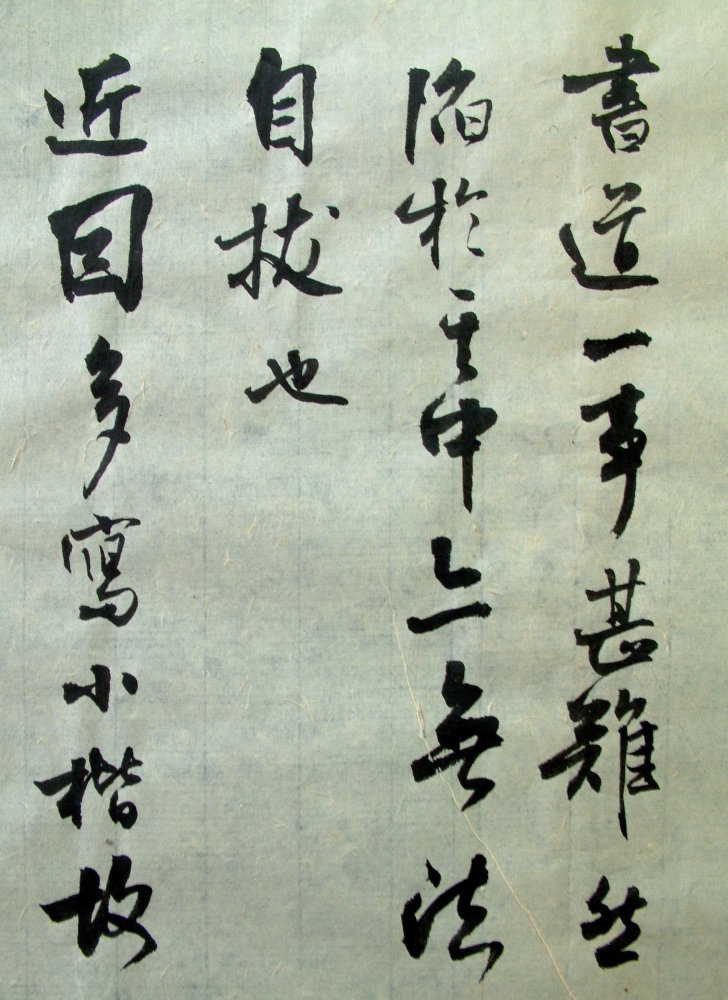 書道一事甚難然
陷於其中亦無法
自拔也
近因多寫小楷故